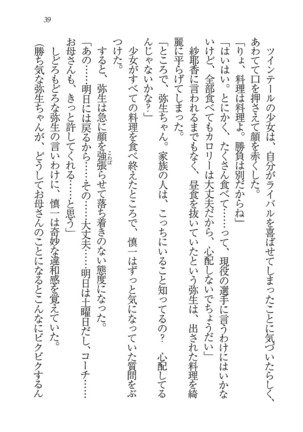 39
ツインテールの少女は、自分がライバルを喜ばせてしまったことに気づいたらしく、
あわてて口を押さえて顔を赤くした。
「りょ、料理は料理よ。勝負は別だからね」
「はいはい。とにかく、たくさん食べて……って、現役の選手に言うわけにはいかな
いけど、全部食べてもカロリーは大丈夫だから、心配しないでちょうだい」
紗耶香に言われるまでもなく、昼食を抜いていたという弥生は、出された料理を綺
麗に平らげてしまった。
「ところで、弥生ちゃん。家族の人は、こっちにいること知ってるの？　心配してる
んじゃないかな？」
少女がすべての料理を食べ終えたところで、慎一はずっと気になっていた質問をぶ
つけた。
すると、弥生は急に顔を強張らせて落ち着きのない態度になった。
「あの……明日には戻るから……その……大丈夫……明日は土曜日だし、コーチ……
お母さんも、きっと許してくれる……と思う」
しどろもどろになった弥生の言いわけに、慎一は奇妙な違和感を覚えていた。
（勝ち気な弥生ちゃんが、どうしてお母さんのことになるとこんなにビクビクするん